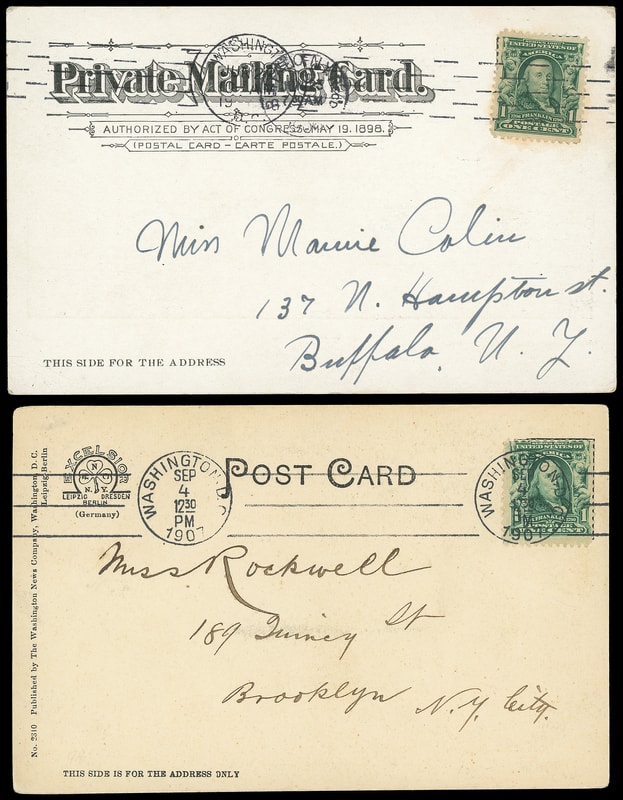 WASHINGTON
UNITED STATES OF
AMERICA
Private Mailing Card.
AUTHORIZED BY ACT OF CONGRESS-MAY 19. 1898.
(POSTAL CARD – CARTE POSTALE.)
FRANKLIN
1 POSTAGE 1
ONE CENT
Miss Mamie Colin
137 N. Hampton st.
Buffalo, N. Y.
THIS SIDE FOR THE ADDRESS
EXCELSIOR
N.Y.
LEIPZIG DRESDEN
BERLIN
(Germany)
WASHINGTON, D.C.
SEP
4
1230
PM
1907
POST CARD
UNITED STATES OF
WASHINGTON
SEP
1907
FRANKLIN
POSTAGE
ONE CENT
Miss Rockwell
189 Quincy St
Brooklyn N.Y. City.
No. 2310 Published by The Washington News Company, Washington D. C.
Leipzig-Berlin
THIS SIDE IS FOR THE ADDRESS ONLY